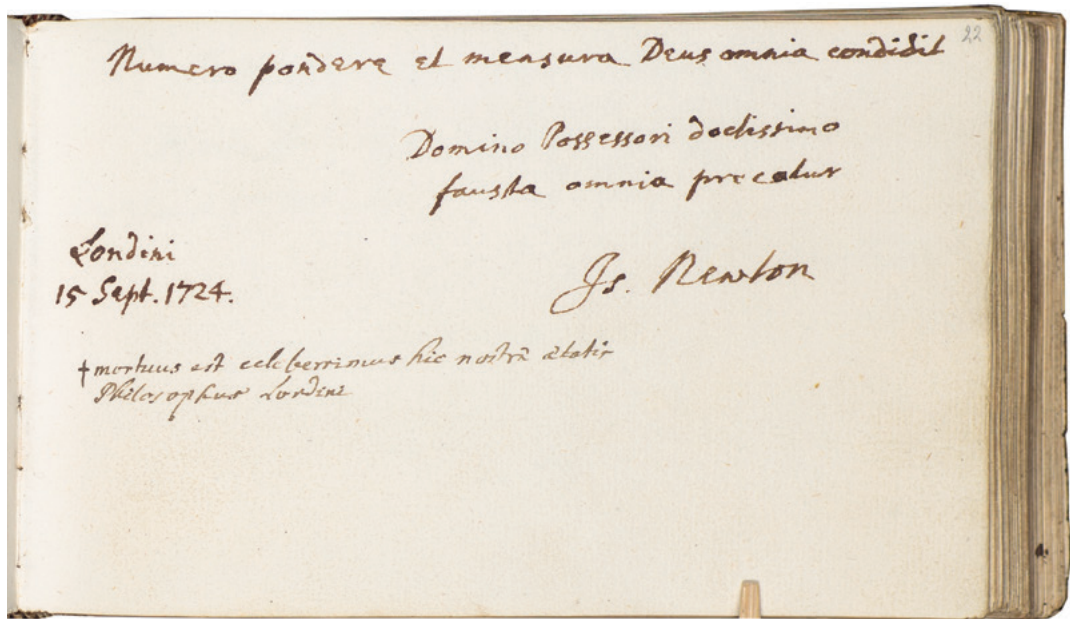 22
Numero pondere et mensura Deus omnia condidit
Domino Possessori doctissimo
fausta omnia precatur
Londini
15 Sept. 1724.
Is. Newton
† mortuus est celeberrimus hic nostrã ætatis
Philosophus Londini